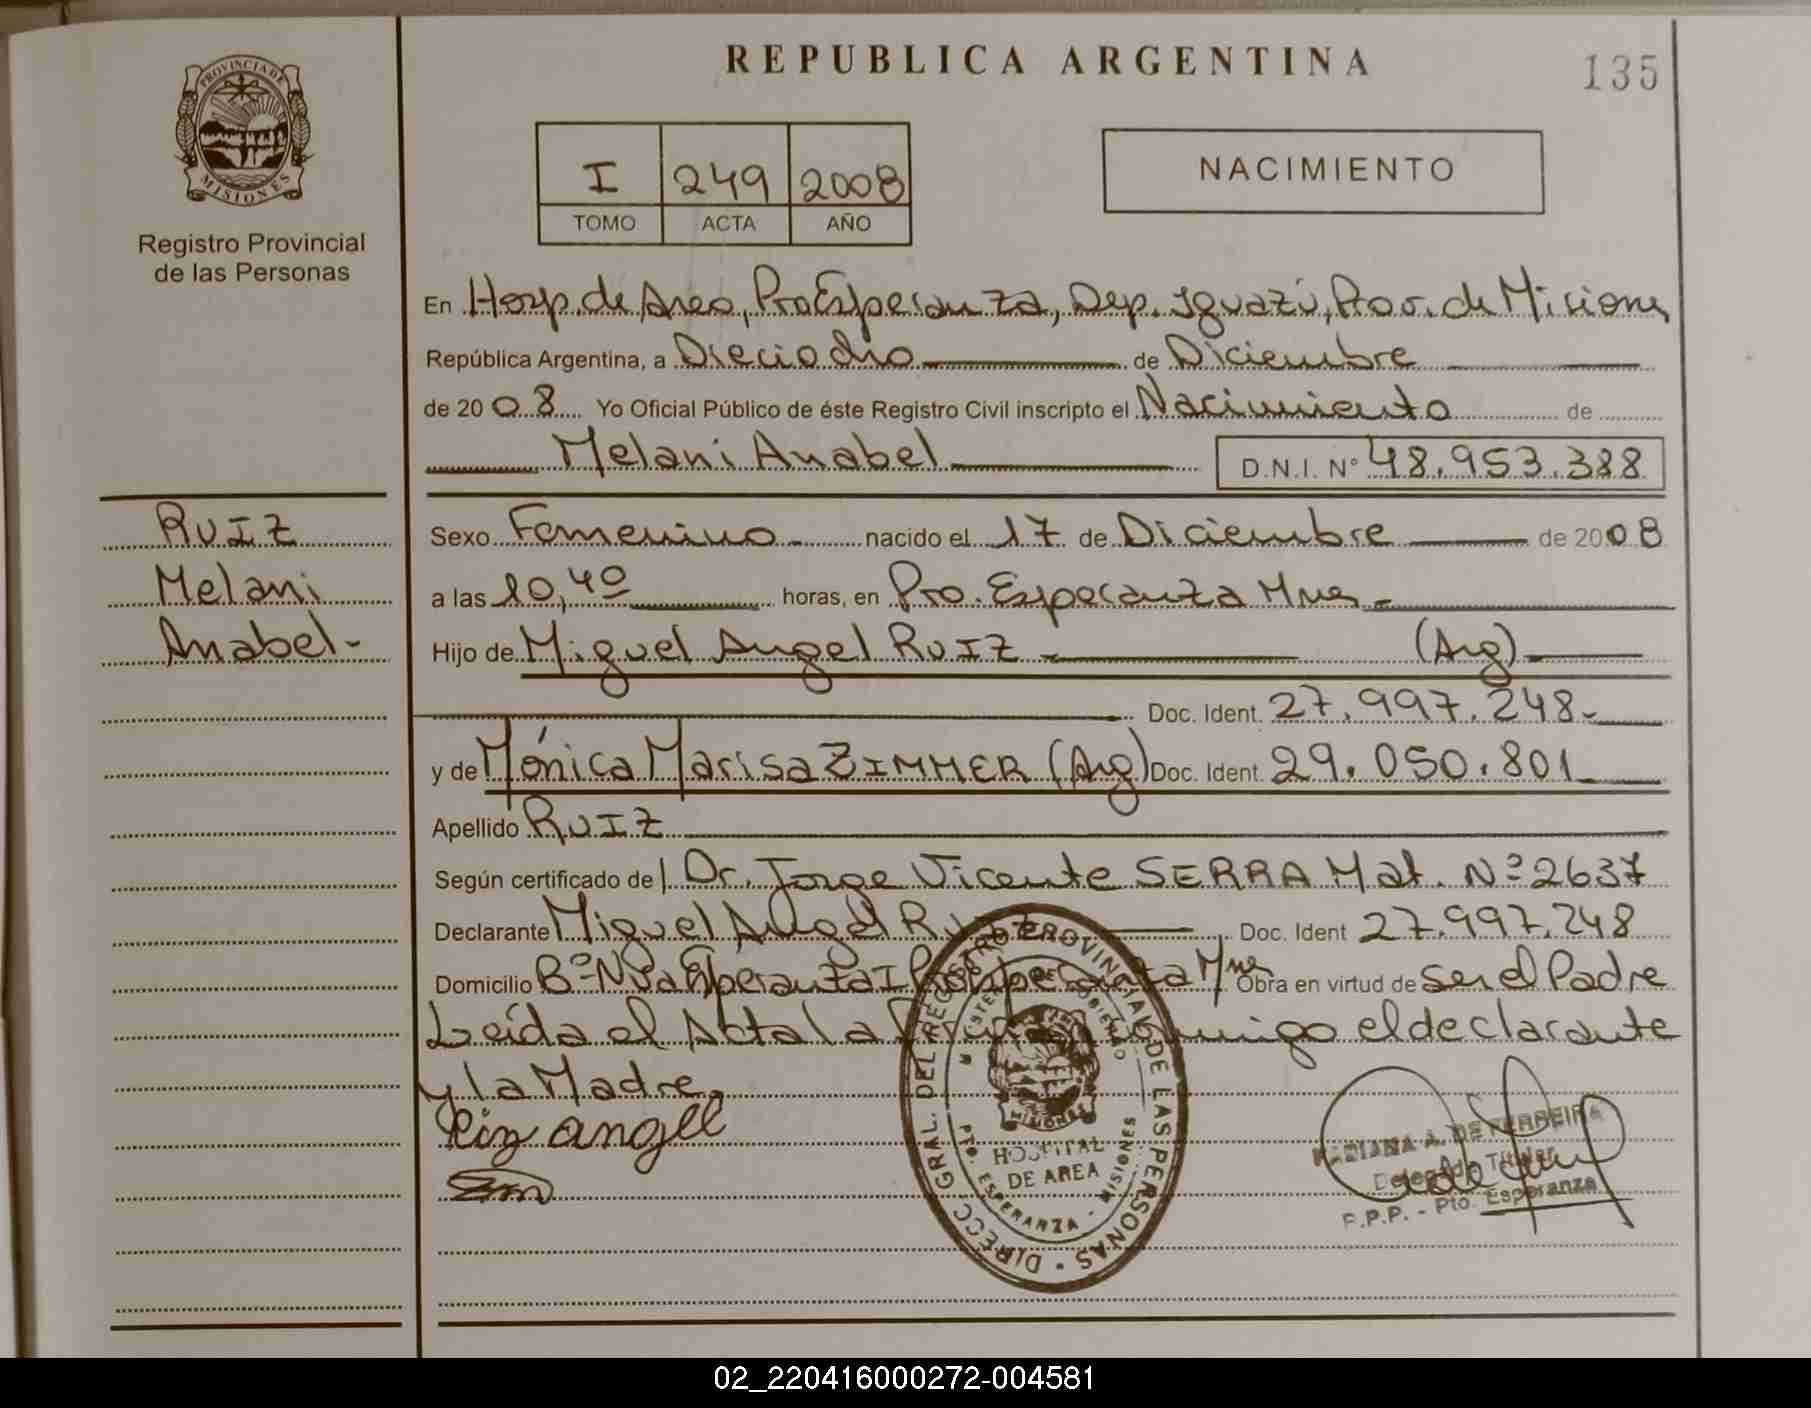 REPUBLICA ARGENTINA
135
PROVINCIA DE
MISIONES
Registro Provincial
de las Personas
I 249 2008
TOMO ACTA AÑO
NACIMIENTO
En Hosp. de Area, Pto Esperanza, Dep. Iguazú, Prov. de Misiones
República Argentina, a Dieciocho de Diciembre
de 2008 Yo Oficial Público de éste Registro Civil inscripto el Nacimiento de
Melani Anabel D.N.I. N° 48.953.388
RUIZ
Melani
Anabel-
Sexo Femenino - nacido el 17 de Diciembre de 2008
a las 10,40 horas, en Pto. Esperanza Mnes -
Hijo de Miguel Angel RUIZ - (Arg)
Doc. Ident. 27.997.248-
y de Mónica Marisa ZIMMER (Arg) Doc. Ident. 29.050.801
Apellido RUIZ
Según certificado de / Dr. Jorge Vicente SERRA Mat. Nº 2637
Declarante Miguel Angel RUIZ Doc. Ident 27.997.248
Domicilio Bº Nva Esperanza I Pto Esperanza Mnes Obra en virtud de ser el Padre
Leída el Acta la conmigo el declarante
y la Madre,
Ruiz angel
DIRECC. GRAL. DEL REGISTRO PROVINCIAL DE LAS PERSONAS
MINISTERIO DE GOBIERNO
MISIONES
HOSPITAL
DE AREA
PTO. ESPERANZA - MISIONES
A. DE FERREIRA
Delegada Titular
R.P.P. - Pto. Esperanza
02_220416000272-004581